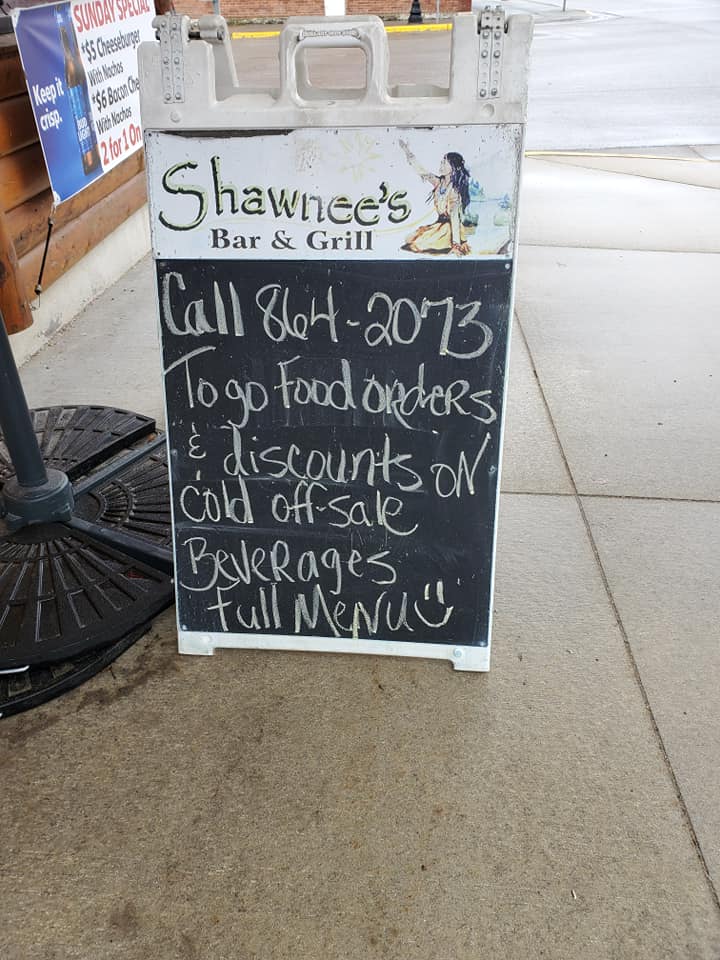 SUNDAY SPECIAL
*$5 Cheeseburger
With Nachos
*$6 Bacon Che
With Nachos
2 for 1 On
Keep it
crisp.
BUD
LIGHT
Shawnee's
Bar & Grill
Call 864-2073
To go Food orders
& discounts on
cold off-sale
Beverages
full Menu